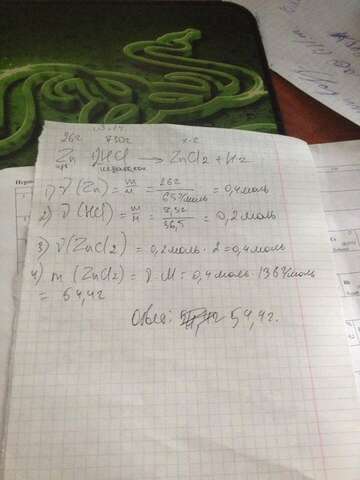 26г 730г x г
Zn 2HCl → ZnCl2 + H2
избыток
1) ν(Zn) = m/M = 26г/65г/моль = 0,4 моль
2) ν(HCl) = m/M = 7,3г/36,5 = 0,2 моль
3) ν(ZnCl2) = 0,2 моль · 2 = 0,4 моль
4) m(ZnCl2) = ν · M = 0,4 моль · 136г/моль
= 54,4г
54,4г.